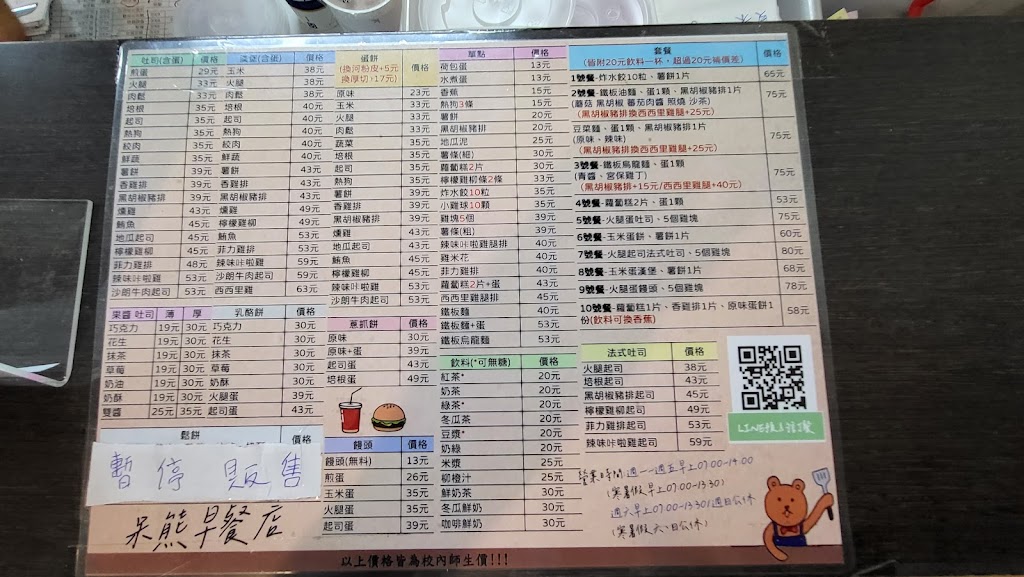 吐司(含蛋) 價格
煎蛋 29元
火腿 33元
肉鬆 33元
培根 35元
起司 35元
熱狗 35元
絞肉 35元
鮮蔬 35元
薯餅 39元
香雞排 39元
黑胡椒豬排 39元
燻雞 43元
鮪魚 45元
地瓜起司 45元
檸檬雞柳 45元
菲力雞排 48元
辣味咔啦雞 53元
沙朗牛肉起司 53元
漢堡(含蛋) 價格
玉米 38元
火腿 38元
肉鬆 38元
培根 40元
起司 40元
熱狗 40元
絞肉 40元
鮮蔬 40元
薯餅 43元
香雞排 43元
黑胡椒豬排 43元
燻雞 49元
檸檬雞柳 49元
鮪魚 53元
菲力雞排 53元
辣味咔啦雞 59元
沙朗牛肉起司 59元
西西里雞 63元
蛋餅 價格
(換河粉皮+5元
換厚切+17元)
原味 23元
玉米 33元
火腿 33元
肉鬆 33元
蔬菜 35元
培根 35元
起司 35元
熱狗 35元
薯餅 39元
香雞排 39元
黑胡椒豬排 39元
燻雞 43元
地瓜起司 43元
鮪魚 45元
檸檬雞柳 45元
辣味咔啦雞 53元
沙朗牛肉起司 53元
單點 價格
荷包蛋 13元
水煮蛋 13元
香蕉 15元
熱狗3條 15元
薯餅 20元
黑胡椒豬排 20元
地瓜泥 25元
薯條(細) 30元
蘿蔔糕2片 30元
檸檬雞柳條2條 33元
炸水餃10粒 35元
小雞球10顆 35元
雞塊5個 39元
薯條(粗) 39元
辣味咔啦雞腿排 40元
雞米花 40元
菲力雞排 40元
蘿蔔糕2片+蛋 43元
西西里雞腿排 45元
鐵板麵 40元
鐵板麵+蛋 53元
鐵板烏龍麵 53元
套餐 價格
(皆附20元飲料一杯,超過20元補價差)
1號餐-炸水餃10粒、薯餅1片 65元
2號餐-鐵板油麵、蛋1顆、黑胡椒豬排1片 75元
(蘑菇 黑胡椒 蕃茄肉醬 照燒 沙茶)
(黑胡椒豬排換西西里雞腿+25元)
豆菜麵、蛋1顆、黑胡椒豬排1片 75元
(原味、辣味)
(黑胡椒豬排換西西里雞腿+25元)
3號餐-鐵板烏龍麵、蛋1顆 75元
(青醬、宮保雞丁)
(黑胡椒豬排+15元/西西里雞腿+40元)
4號餐-蘿蔔糕2片、蛋1顆 53元
5號餐-火腿蛋吐司、5個雞塊 75元
6號餐-玉米蛋餅、薯餅1片 60元
7號餐-火腿起司法式吐司、5個雞塊 80元
8號餐-玉米蛋漢堡、薯餅1片 68元
9號餐-火腿蛋饅頭、5個雞塊 78元
10號餐-蘿蔔糕1片、香雞排1片、原味蛋餅1 58元
份(飲料可換香蕉)
果醬 吐司 薄 厚
巧克力 19元 30元
花生 19元 30元
抹茶 19元 30元
草莓 19元 30元
奶油 19元 30元
奶酥 19元 30元
雙醬 25元 35元
乳酪餅 價格
巧克力 30元
花生 30元
抹茶 30元
草莓 30元
奶酥 30元
火腿蛋 39元
起司蛋 43元
蔥抓餅 價格
原味 30元
原味+蛋 39元
起司蛋 43元
培根蛋 49元
飲料(*可無糖) 價格
紅茶* 20元
奶茶 20元
綠茶* 20元
冬瓜茶 20元
豆漿* 20元
奶綠 20元
米漿 25元
柳橙汁 25元
鮮奶茶 30元
冬瓜鮮奶 30元
咖啡鮮奶 30元
法式吐司 價格
火腿起司 38元
培根起司 43元
黑胡椒豬排起司 45元
檸檬雞柳起司 49元
菲力雞排起司 53元
辣味咔啦雞起司 59元
鬆餅 價格
暫停販售
呆熊早餐店
饅頭 價格
饅頭(無料) 13元
煎蛋 26元
玉米蛋 35元
火腿蛋 35元
起司蛋 39元
營業時間:週一~週五早上07:00-14:00
(寒暑假早上07:00-13:30)
週六早上07:00-13:30/週日公休
(寒暑假六、日公休)
以上價格皆為校內師生價!!!